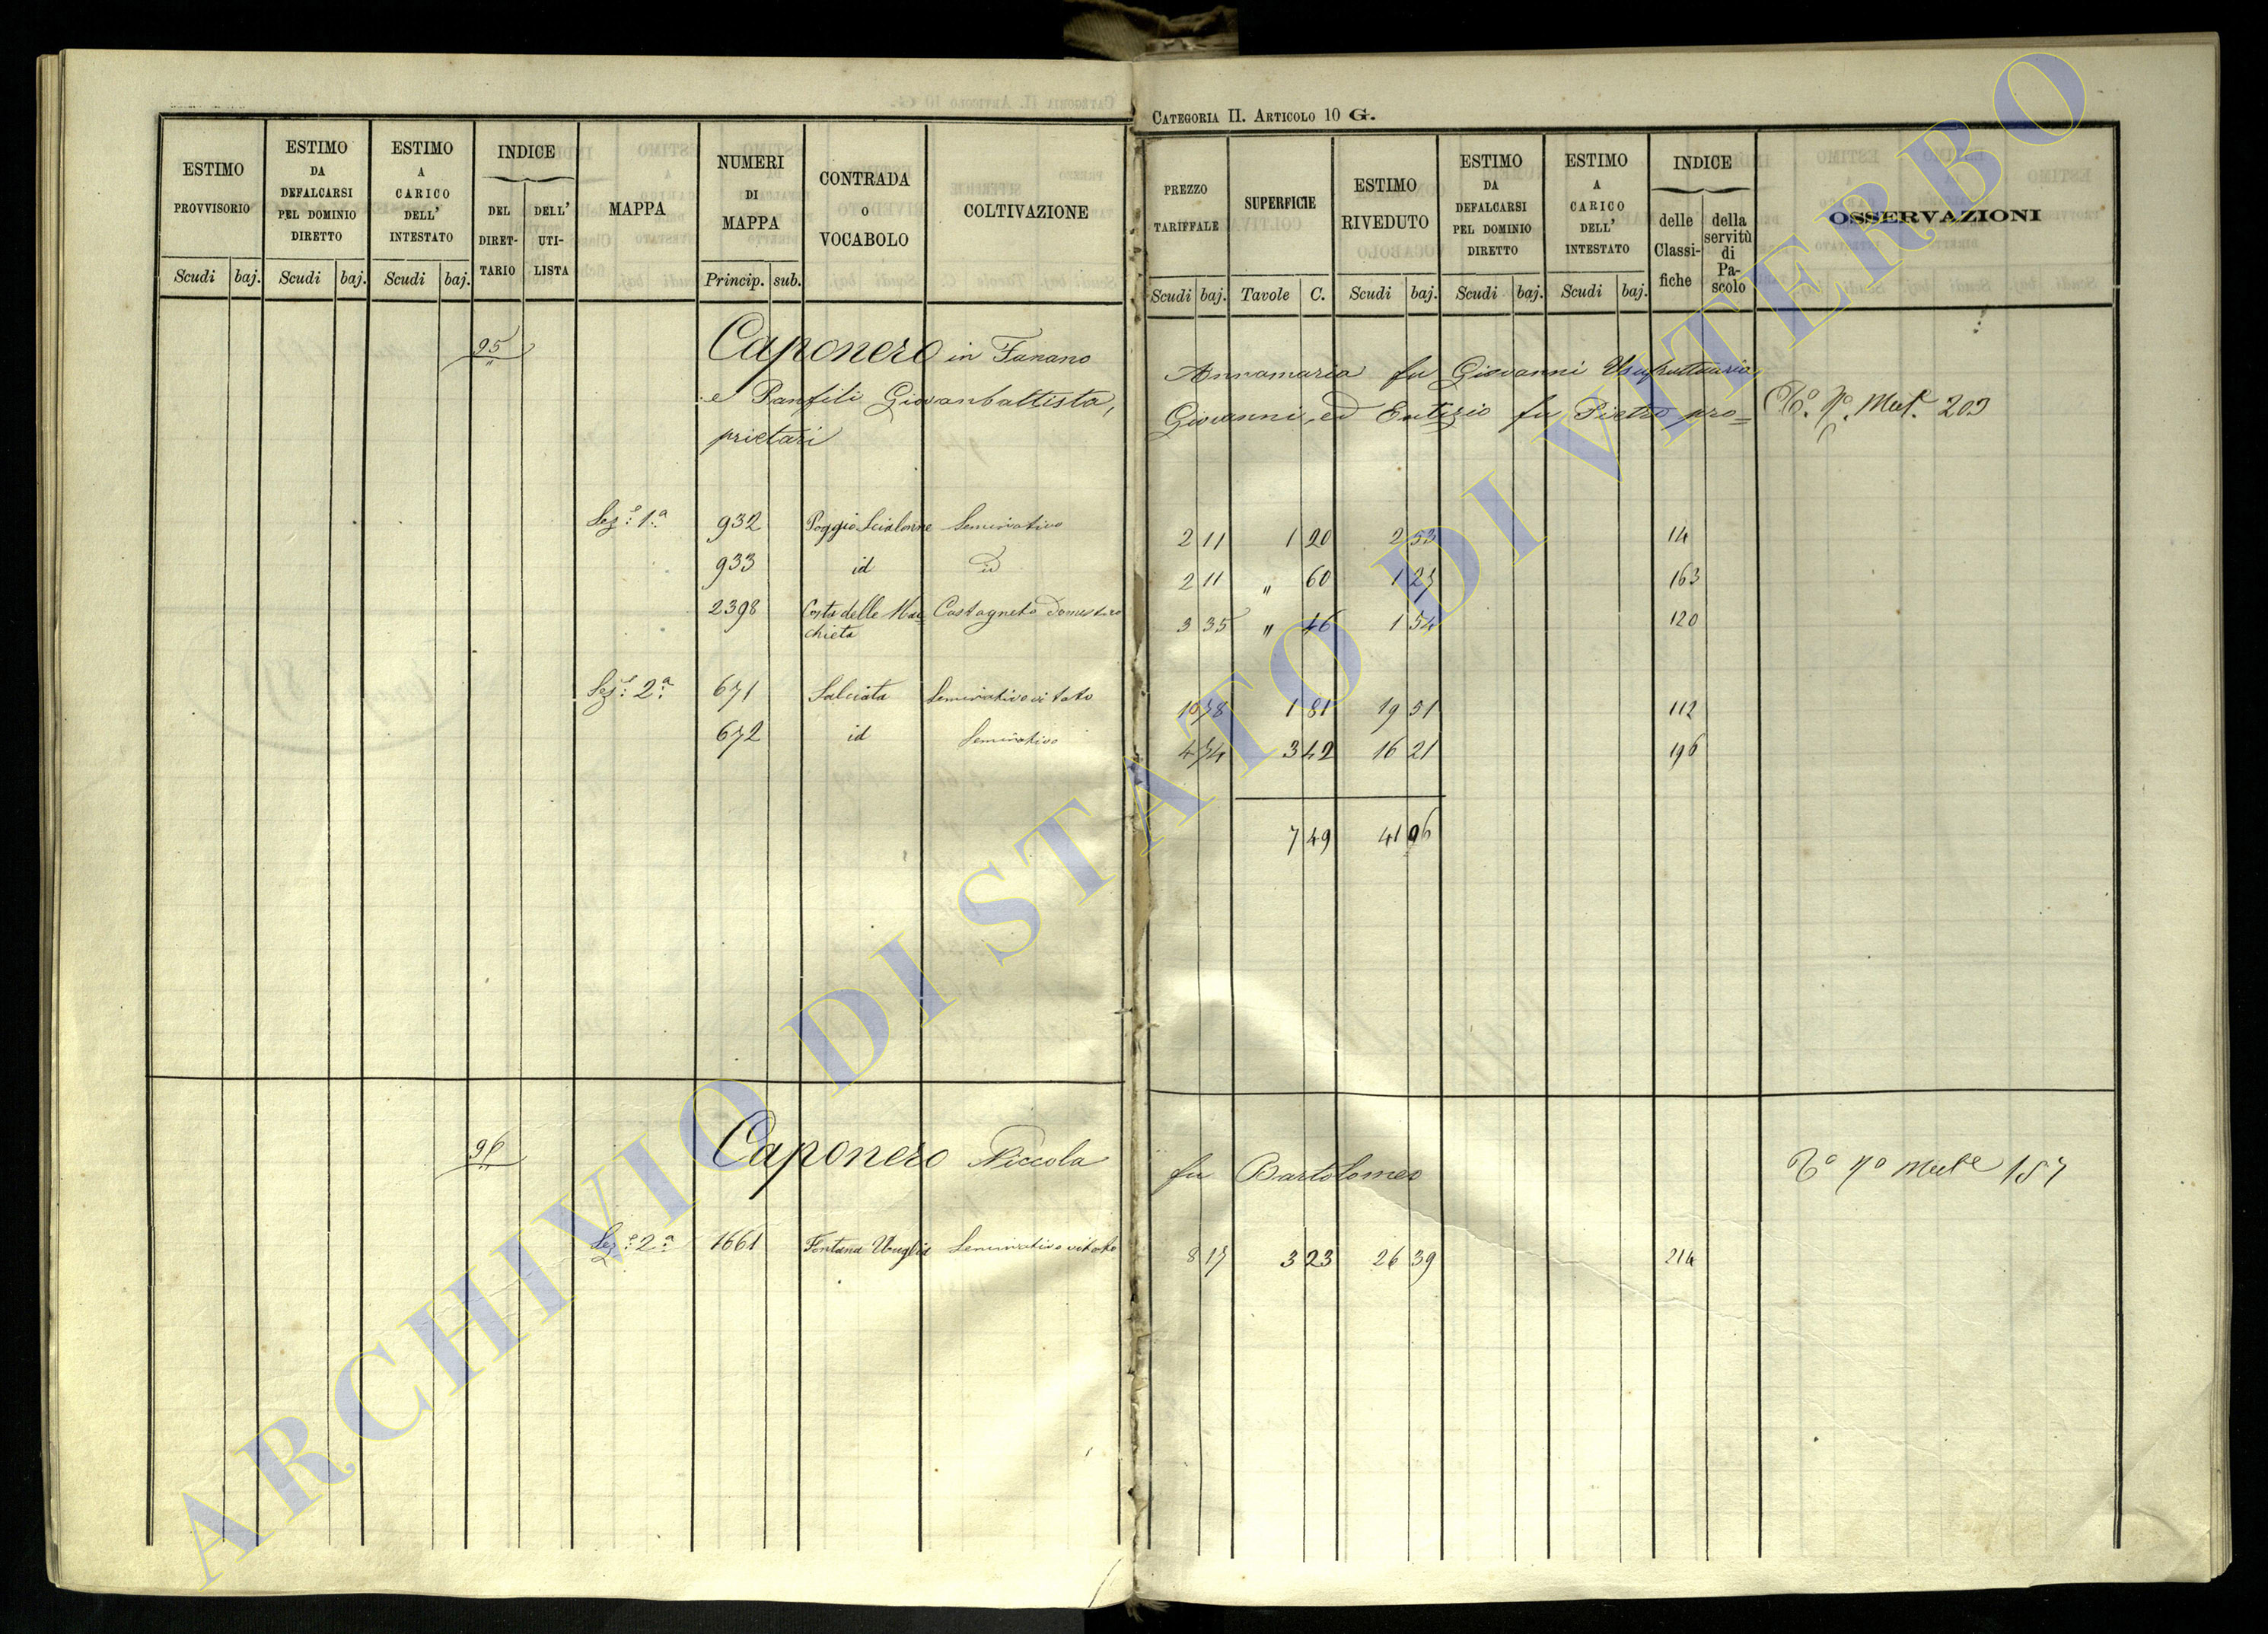 CATEGORIA II. ARTICOLO 10 G.
ESTIMO PROVVISORIO
ESTIMO DA DEFALCARSI PEL DOMINIO DIRETTO
ESTIMO A CARICO DELL' INTESTATO
INDICE
DEL DIRET-TARIO
DELL' UTI-LISTA
MAPPA
NUMERI DI MAPPA
CONTRADA O VOCABOLO
COLTIVAZIONE
Scudi baj. Scudi baj. Scudi baj. Princip. sub.
PREZZO TARIFFALE
SUPERFICIE
ESTIMO RIVEDUTO
ESTIMO DA DEFALCARSI PEL DOMINIO DIRETTO
ESTIMO A CARICO DELL' INTESTATO
INDICE
delle Classi-fiche
della servitù di Pa-scolo
OSSERVAZIONI
Scudi baj. Tavole C. Scudi baj. Scudi baj. Scudi baj.
95 Caponero in Fanano Annamaria fu Giovanni Usufruttuaria,
e Panfili Giovanbattista, Giovanni, ed Eutizio fu Pietro pro=
prietari
203
Sez.e 1.a 932 Poggio Scialonne Seminativo 2 11 1 20 2 53 14
933 id id 2 11 " 60 1 27 163
2398 Costa delle Mac Castagneto domestico 3 35 " 46 1 54 120
chieta
Sez.e 2.a 671 Salciata Seminativo vitato 10 78 1 81 19 51 112
672 id Seminativo 4 74 3 42 16 21 196
7 49 41 06
96 Caponero Niccola fu Bartolomeo 157
Sez.e 2.a 1661 Fontana Seminativo vitato 8 17 3 23 26 39 214
ARCHIVIO DI STATO DI VITERBO